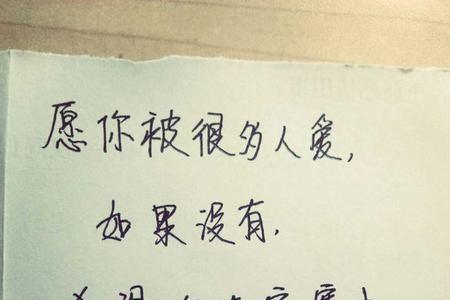 愿你被很多人爱,
如果没有,